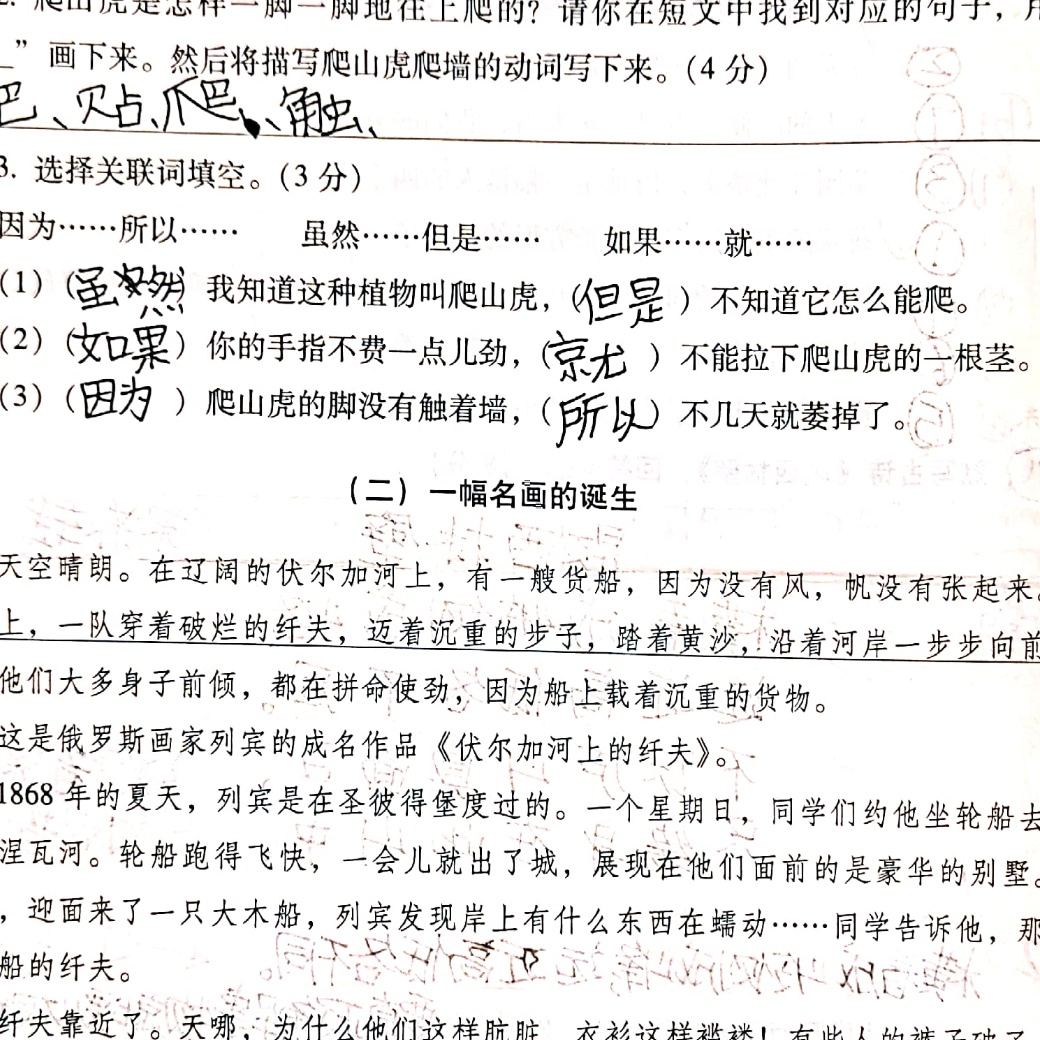 爬山虎是怎样一脚一脚地往上爬的？请你在短文中找到对应的句子，用
_”画下来。然后将描写爬山虎爬墙的动词写下来。（4 分）
巴、贴、爬、触、
3. 选择关联词填空。（3 分）
因为……所以…… 虽然……但是…… 如果……就……
（1）（虽然）我知道这种植物叫爬山虎，（但是）不知道它怎么能爬。
（2）（如果）你的手指不费一点儿劲，（就）不能拉下爬山虎的一根茎。
（3）（因为）爬山虎的脚没有触着墙，（所以）不几天就萎掉了。
（二）一幅名画的诞生
天空晴朗。在辽阔的伏尔加河上，有一艘货船，因为没有风，帆没有张起来。
上，一队穿着破烂的纤夫，迈着沉重的步子，踏着黄沙，沿着河岸一步步向前
他们大多身子前倾，都在拼命使劲，因为船上载着沉重的货物。
这是俄罗斯画家列宾的成名作品《伏尔加河上的纤夫》。
1868 年的夏天，列宾是在圣彼得堡度过的。一个星期日，同学们约他坐轮船去
涅瓦河。轮船跑得飞快，一会儿就出了城，展现在他们面前的是豪华的别墅。
，迎面来了一只大木船，列宾发现岸上有什么东西在蠕动……同学告诉他，那
船的纤夫。
纤夫靠近了。天哪，为什么他们这样肮脏，衣衫这样褴褛！有些人的裤子破了